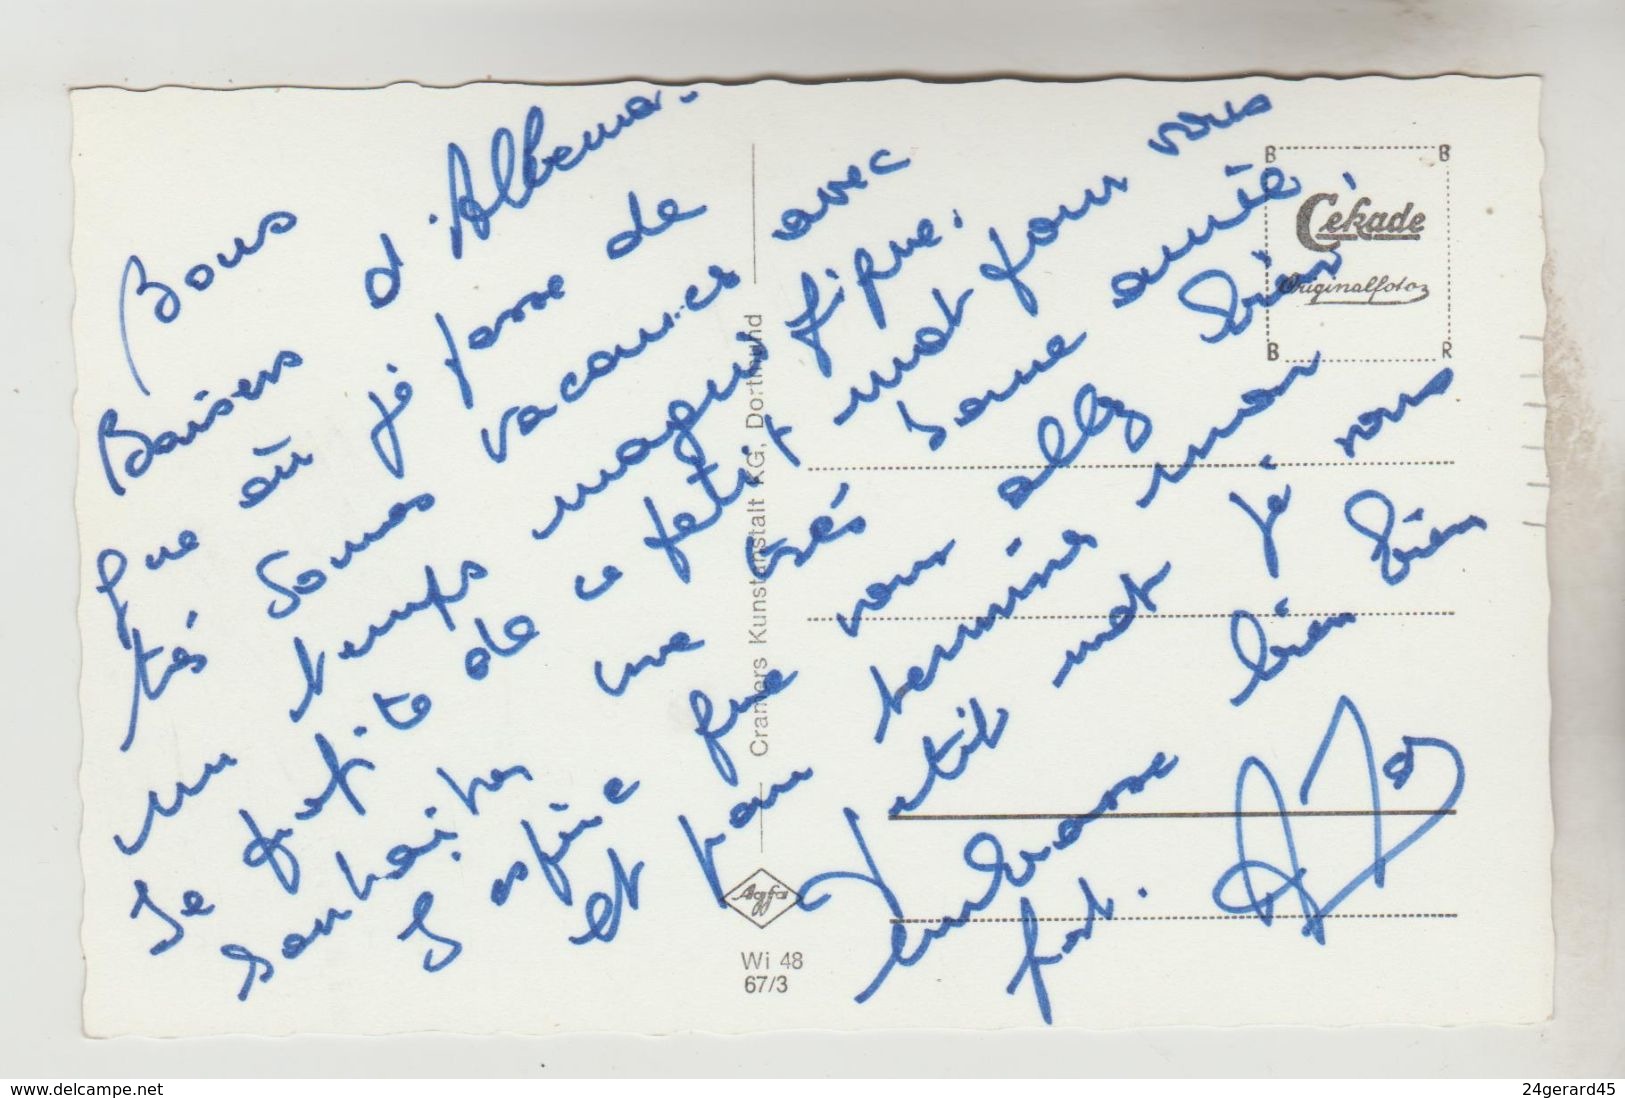 Bons
Baisers d'Allema-
gne où je passe de
tés bones vacances avec
un temps magnifique.
Je profite de ce petit mot pour vous
souhaiter une trés bonne année
J'espère que vous allez bien
et vous termine mon
petit mot je vous
embrasse bien bien
fort.
Cekade
Originalfoto
B B
B R
Cramers Kunstanstalt KG, Dortmund
Agfa
Wi 48
67/3
www.delcampe.net
24gerard45